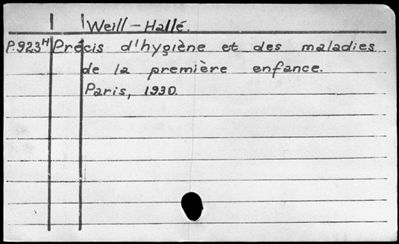 Weill-Hallé.
P.923ᴴ Précis d'hygiène et des maladies
de la première enfance.
Paris, 1930.